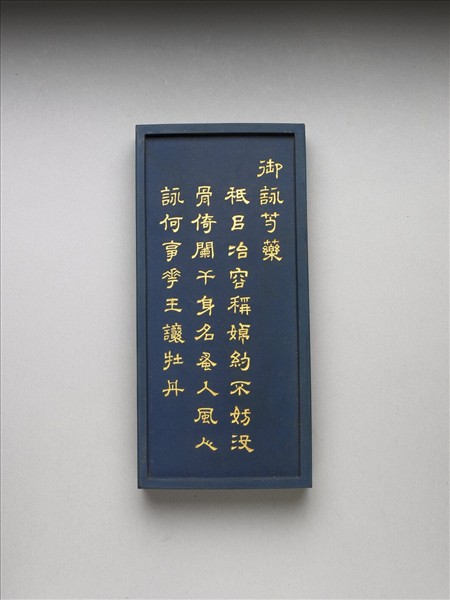 御詠芍藥
秖㠯冶容稱婥約不妨没
骨倚闌干身名蚤入風人
詠何事華王讓牡丹